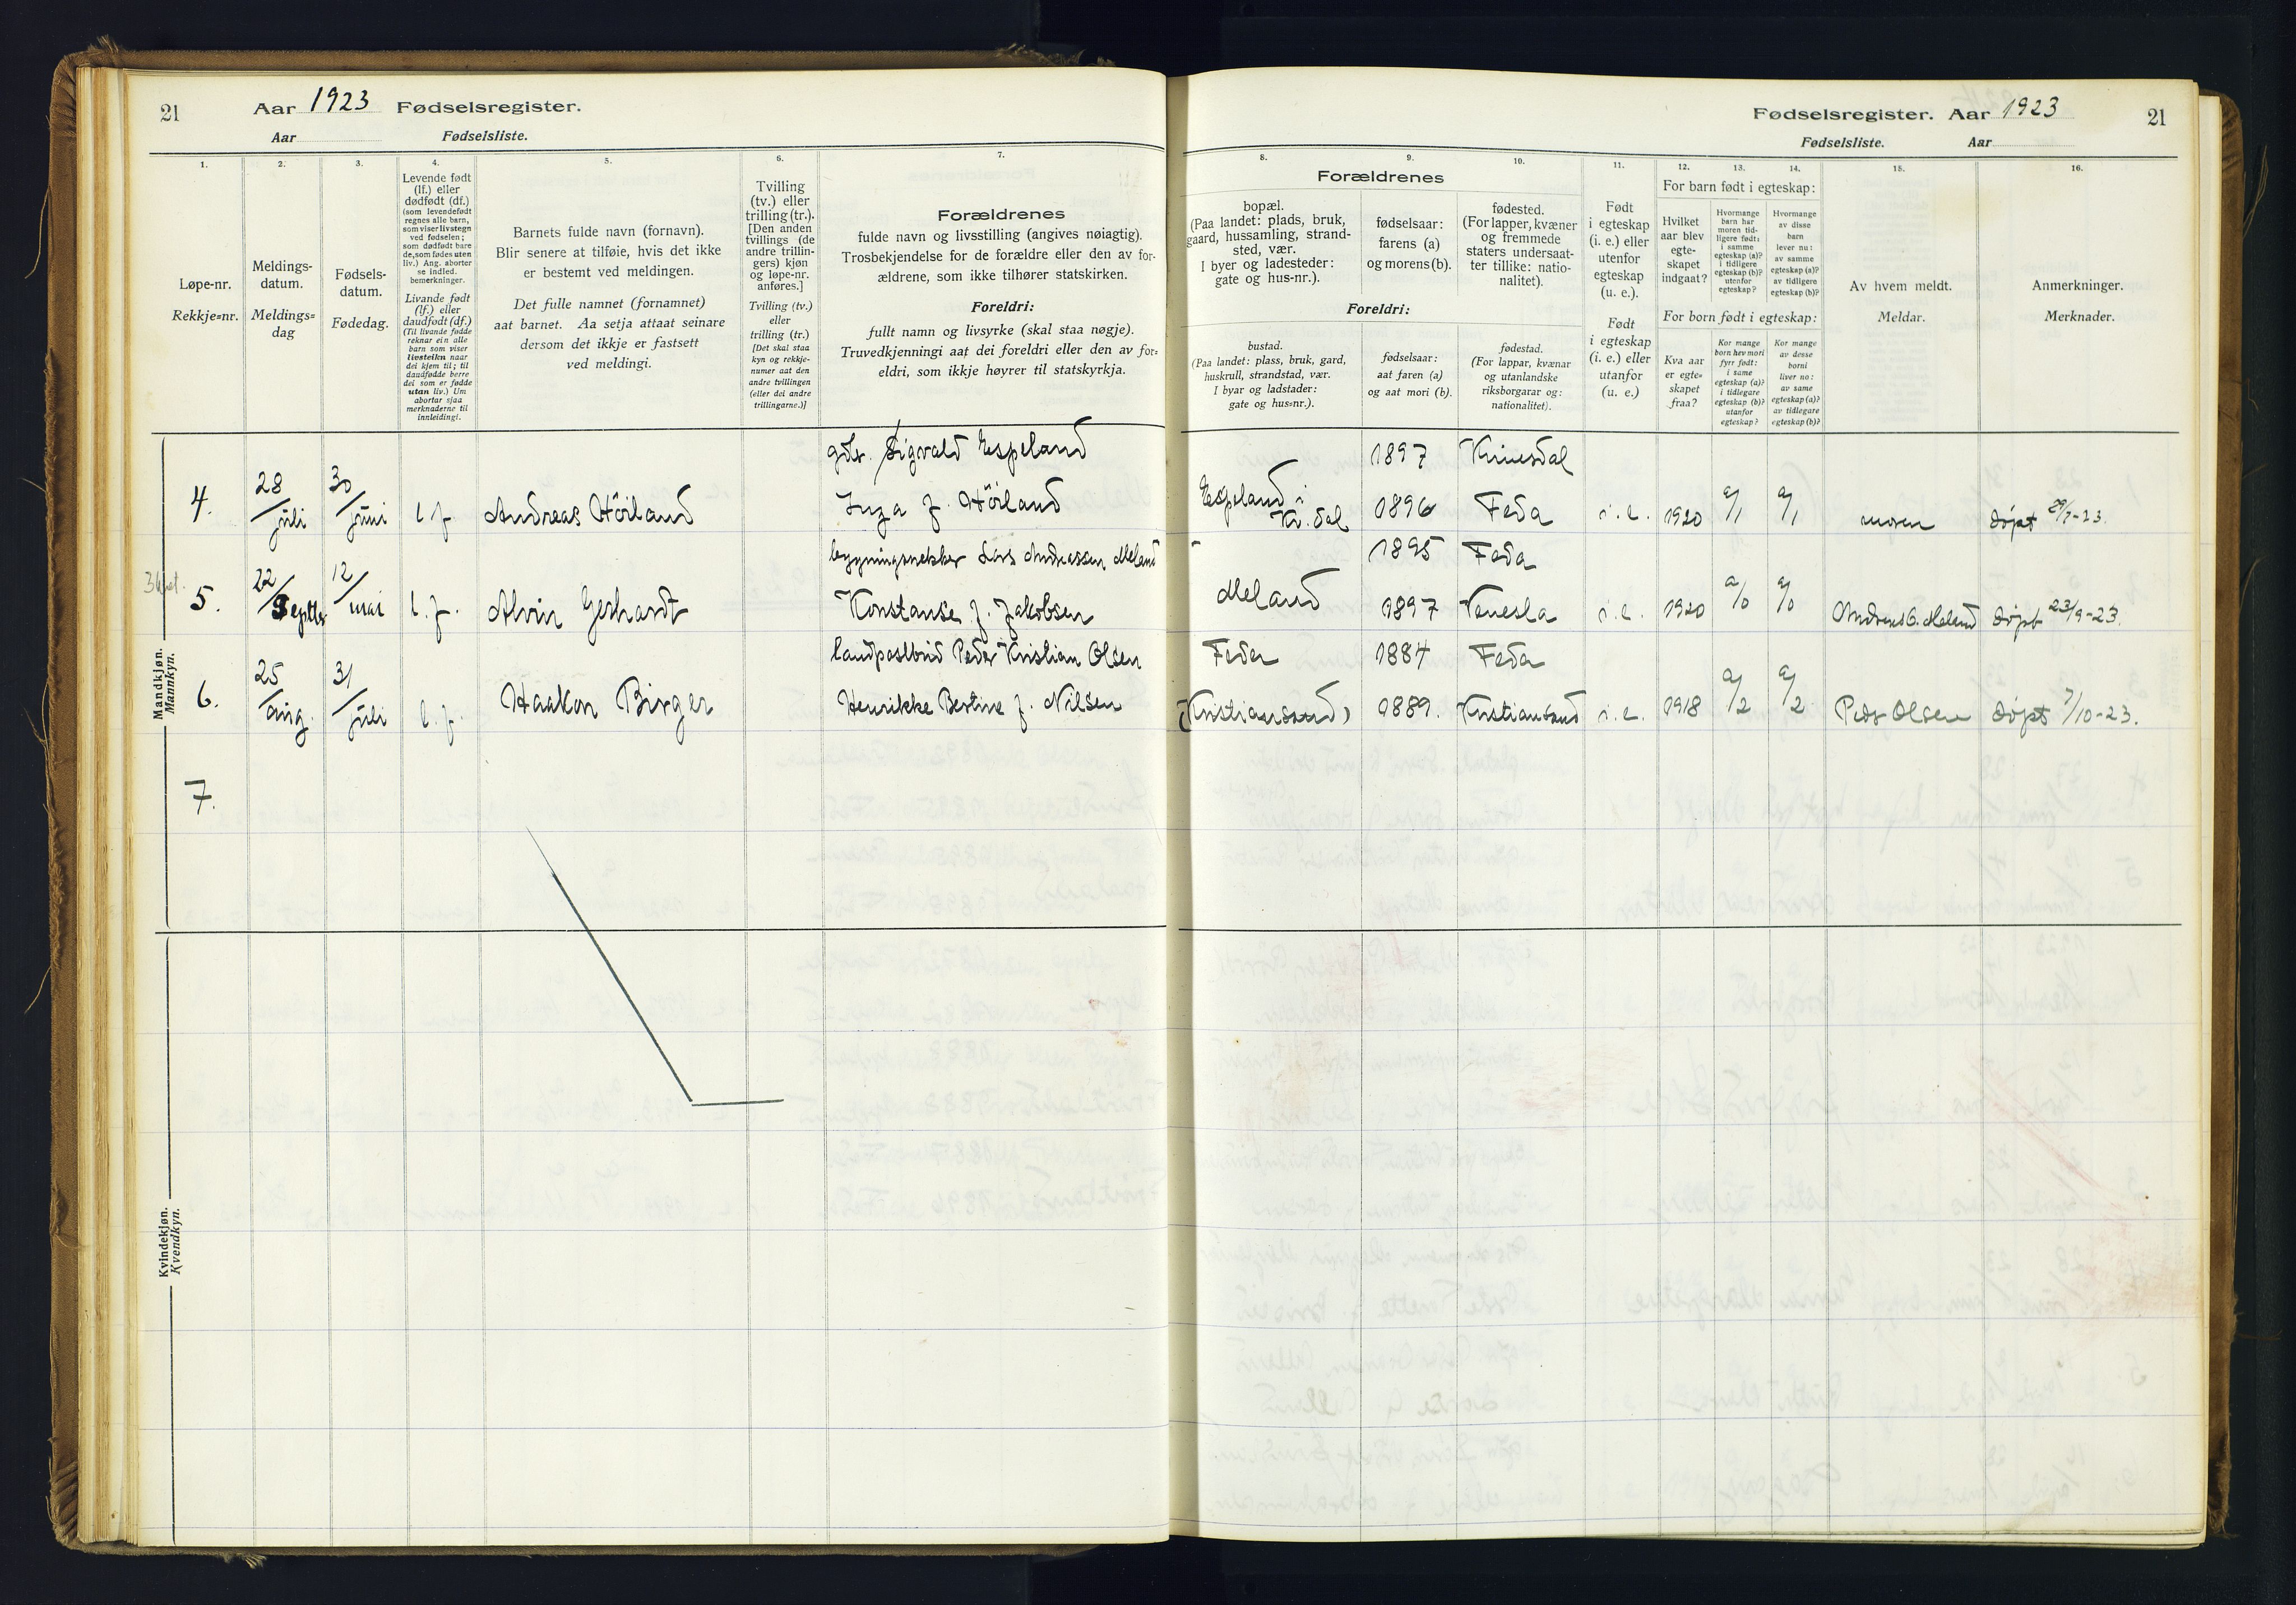 21
Aar 1923 Fødselsregister.
Aar Fødselsliste.
1.
Løpe-nr.
Rekkje=nr.
2.
Meldings-
datum.
Meldings=
dag
3.
Fødsels-
datum.
Fødedag.
4.
Levende født
(lf.) eller
dødfødt (df.)
(som levendefødt
regnes alle barn,
som viser livstegn
ved fødselen;
som dødfødt bare
de, som fødes uten
liv.) Ang. aborter
se indled.
bemerkninger.
Livande født
(lf.) eller
daudfødt (df.)
(Til livande fødde
reknar ein alle
barn som viser
livsteikn naar
dei kjem til; til
daudfødde berre
dei som er fødde
utan liv.) Um
abortar sjaa
merknaderne til
innleidingi.
5.
Barnets fulde navn (fornavn).
Blir senere at tilføie, hvis det ikke
er bestemt ved meldingen.
Det fulle namnet (fornamnet)
aat barnet. Aa setja attaat seinare
dersom det ikkje er fastsett
ved meldingi.
6.
Tvilling
(tv.) eller
trilling (tr.).
[Den anden
tvillings (de
andre trillin-
gers) kjøn
og løpe-nr.
anføres.]
Tvilling (tv.)
eller
trilling (tr.)
[Det skal staa
kyn og rekkje-
numer aat den
andre tvillingen
(eller dei andre
trillingarne.)]
7.
Forældrenes
fulde navn og livsstilling (angives nøiagtig).
Trosbekjendelse for de forældre eller den av for-
ældrene, som ikke tilhører statskirken.
Foreldri:
fullt namn og livsyrke (skal staa nøgje).
Truvedkjenningi aat dei foreldri eller den av for=
eldri, som ikkje høyrer til statskyrkja.
Mandkjøn.
Mannkyn.
gbr. Sigvald Espeland
4. 28/juli 30/juni l.f. Andreas Höiland Inga f. Höiland
bygningssnekker Lars Andreassen Meland
5. 22/Septbr 12/mai l.f. Alvin Gerhardt Konstanse f. Jakobsen
landpostbud Peder Kristian Olsen
6. 25/aug. 31/juli l.f. Haakon Birger Henrikke Bertine f. Nilsen
7.
Kvindekjøn.
Kvendkyn.
Fødselsregister. Aar 1923
21
Fødselsliste. Aar
Forældrenes
8.
bopæl.
(Paa landet: plads, bruk,
gaard, hussamling, strand-
sted, vær.
I byer og ladesteder:
gate og hus-nr.).
9.
fødselsaar:
farens (a)
og morens (b).
10.
fødested.
(For lapper, kvæner
og fremmede
staters undersaat-
ter tillike: natio-
nalitet).
Foreldri:
bustad.
(Paa landet: plass, bruk, gard,
huskrull, strandstad, vær.
I byar og ladstader:
gate og hus=nr.).
fødselsaar:
aat faren (a)
og aat mori (b).
fødestad.
(For lappar, kvænar
og utanlandske
riksborgarar og:
nationalitet).
11.
Født
i egteskap
(i. e.) eller
utenfor
egteskap
(u. e.).
Født
i egteskap
(i. e.) eller
utanfor
(u. e.)
For barn født i egteskap:
12.
Hvilket
aar blev
egte-
skapet
indgaat?
13.
Hvormange
barn har
moren tid-
ligere født:
i samme
egteskap (a)?
i tidligere
egteskap (b)?
utenfor
egteskap?
14.
Hvormange
av disse
barn
lever nu:
av samme
egteskap (a)?
av tidligere
egteskap (b)?
For born født i egteskap:
Kva aar
er egte=
skapet
fraa?
Kor mange
born hev mori
fyrr født:
i same
egteskap (a)?
i tidlegare
egteskap (b)?
utanfor
egteskap?
Kor mange
av desse
borni
liver no:
av same
egteskap (a)?
av tidlegare
egteskap (b)?
15.
Av hvem meldt.
Meldar.
16.
Anmerkninger.
Merknader.
1897 Kvinesdal
Espeland i Kv.dal 1896 Feda i.e. 1920 a/1 a/1 moren døpt 29/7-23.
1895 Feda
Meland 1897 Venesla i.e. 1920 a/0 a/0 Andreas G. Meland døpt 23/9-23.
Feda 1884 Feda
(Kristiansand) 1889. Kristiansand i.e. 1918 a/2 a/2 Peder Olsen døpt 7/10-23.